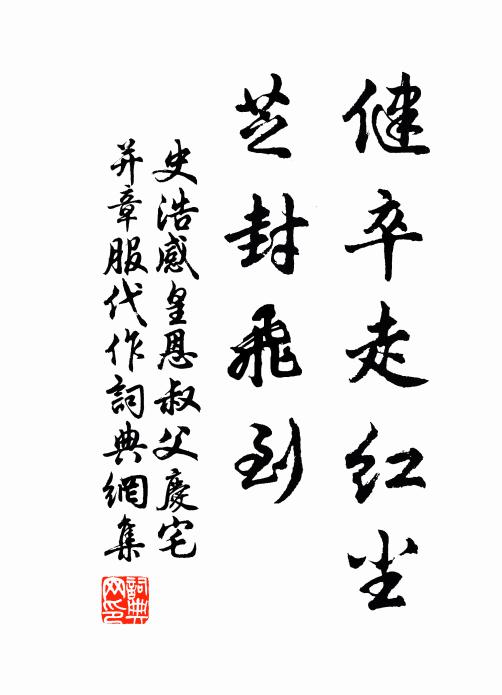 健卒走红尘
芝封飛到
史浩感皇恩叔父慶宅
并章服代作詞典網集
詞典網印